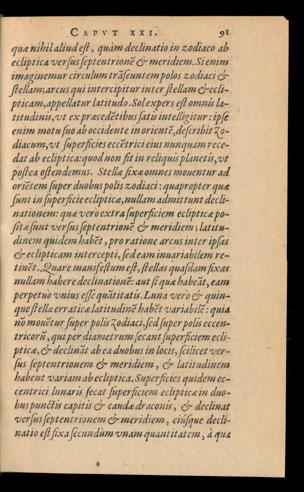 CAPVT XXI. 91
quæ nihil aliud est, quàm declinatio in zodiaco ab
ecliptica versus septentrionē & meridiem. Si enim
imaginemur circulum trāseuntem polos zodiaci &
stellam, arcus qui intercipitur inter stellam & ecli-
pticam, appellatur latitudo. Sol expers est omnis la-
titudinis, vt ex præcedētibus satis intelligitur: ipse
enim motu suo ab occidente in orientē, describit Zo-
diacum, vt superficies eccētrici eius nunquam rece-
dat ab ecliptica: quod non fit in reliquis planetis, vt
postea ostendemus. Stellæ fixæ omnes mouentur ad
oriētem super duobus polis zodiaci: quapropter quæ
sunt in superficie eclipticæ, nullam admittunt decli-
nationem: quæ verò extra superficiem eclipticæ po-
sitæ sunt versus septentrionē & meridiem: latitu-
dinem quidem habēt, pro ratione arcus inter ipsas
& eclipticam intercepti, sed eam inuariabilem re-
tinēt. Quare manifestum est, stellas quasdam fixas
nullam habere declinationē: aut si quæ habeāt, eam
perpetuò vnius esse quātitatis. Luna verò & quin-
que stellæ erraticæ latitudinē habēt variabilē: quia
nō mouētur super polis zodiaci, sed super polis eccen-
tricorū, qui per diametrum secant superficiem ecli-
pticæ, & declināt ab ea duobus in locis, scilicet ver-
sus septentrionem & meridiem, & latitudinem
habent variam ab ecliptica. Superficies quidem ec-
centrici lunaris secat superficiem eclipticæ in duo-
bus punctis capitis & caudæ draconis, & declinat
versus septentrionem & meridiem, eiúsque decli-
natio est fixa secundùm vnam quantitatem, à qua